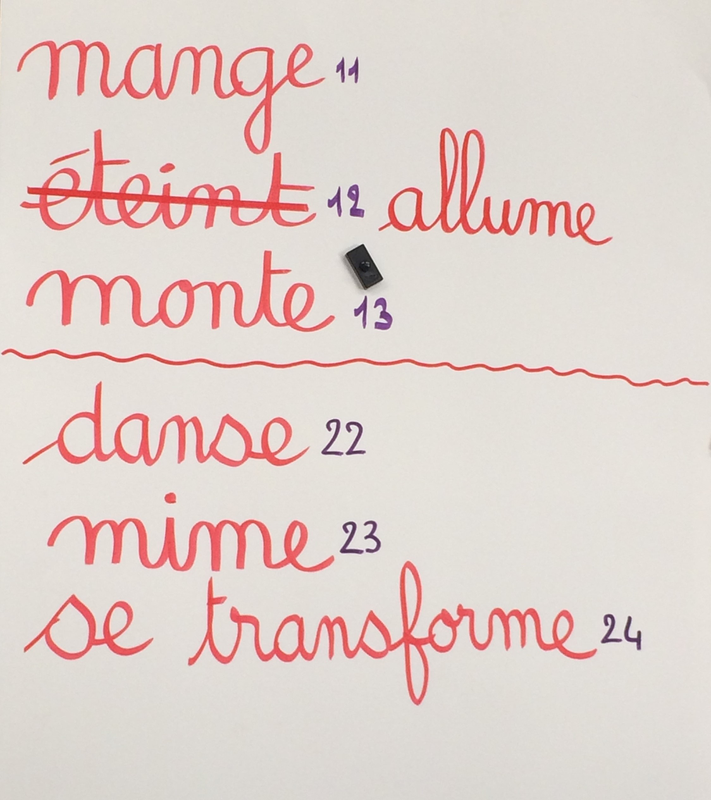 mange 11
éteint 12 allume
monte 13
danse 22
mime 23
se transforme 24